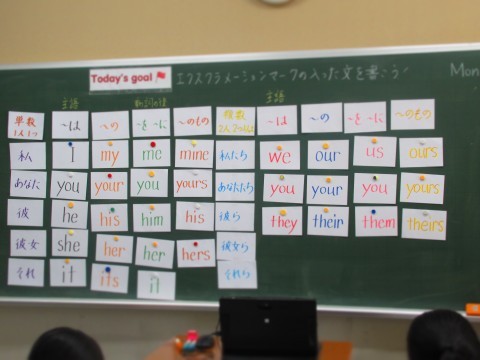 Today's goal エクスクラメーションマークの入った文を書こう Mon
主語 動詞の後 主語
単数 1人、1つ ～は ～の ～を ～に ～のもの 複数 2人、2つ以上 ～は ～の ～を ～に ～のもの
私 I my me mine 私たち we our us ours
あなた you your you yours あなたたち you your you yours
彼 he his him his 彼ら they their them theirs
彼女 she her her hers 彼女ら
それ it its it それら